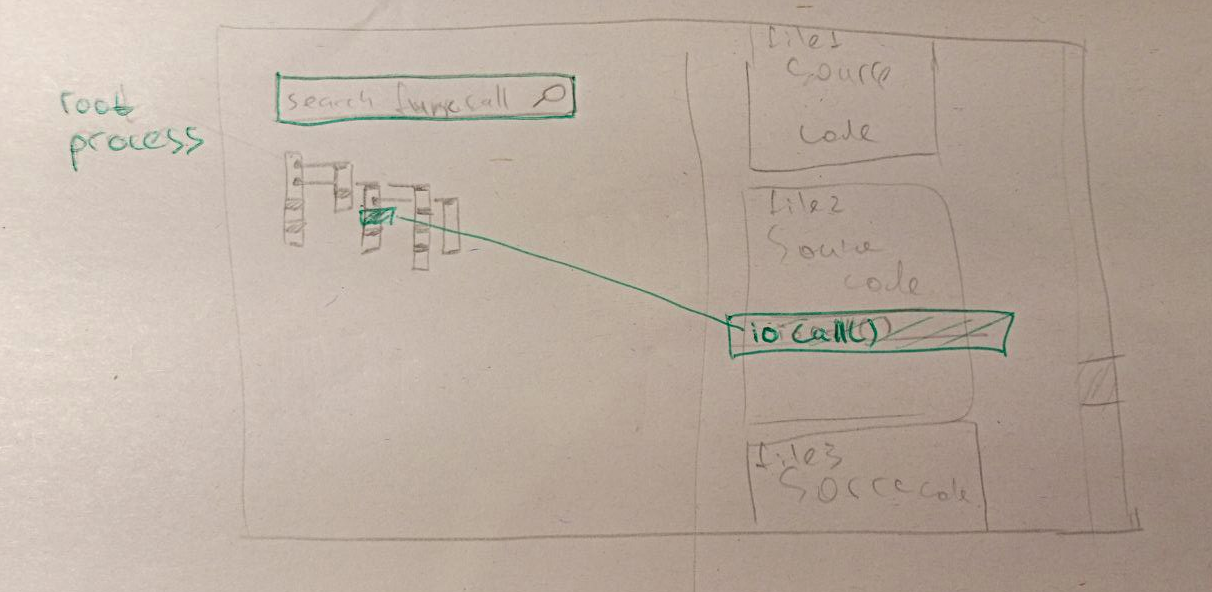 root
process
search func call
file1
source
code
file2
Source
code
io call()
file3
Source code